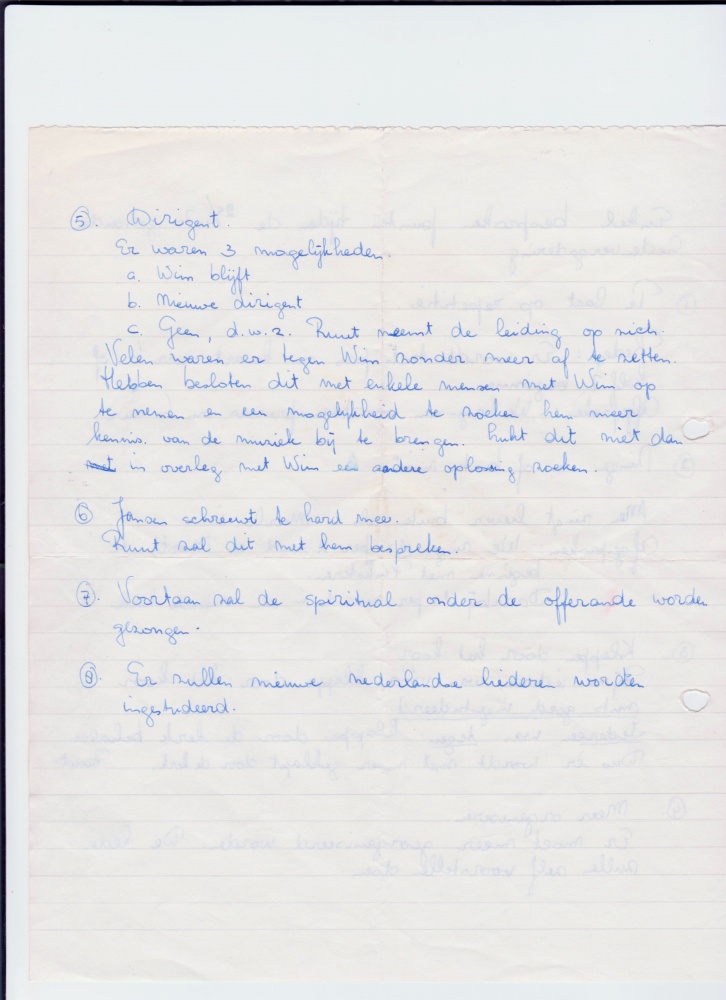 ⑤. Dirigent.
Er waren 3 mogelijkheden.
a. Wim blijft
b. Nieuwe dirigent
c. Geen, d.w.z. Ruut neemt de leiding op zich.
Velen waren er tegen Wim zonder meer af te zetten.
Hebben besloten dit met enkele mensen met Wim op
te nemen en een mogelijkheid te zoeken hem meer
kennis van de muziek bij te brengen. Lukt dit niet dan
in overleg met Wim een andere oplossing zoeken.
⑥ Jansen schreeuwt te hard mee.
Ruut zal dit met hem bespreken.
⑦. Voortaan zal de spiritual onder de offerande worden
gezongen.
⑧. Er zullen nieuwe nederlandse liederen worden
ingestudeerd.